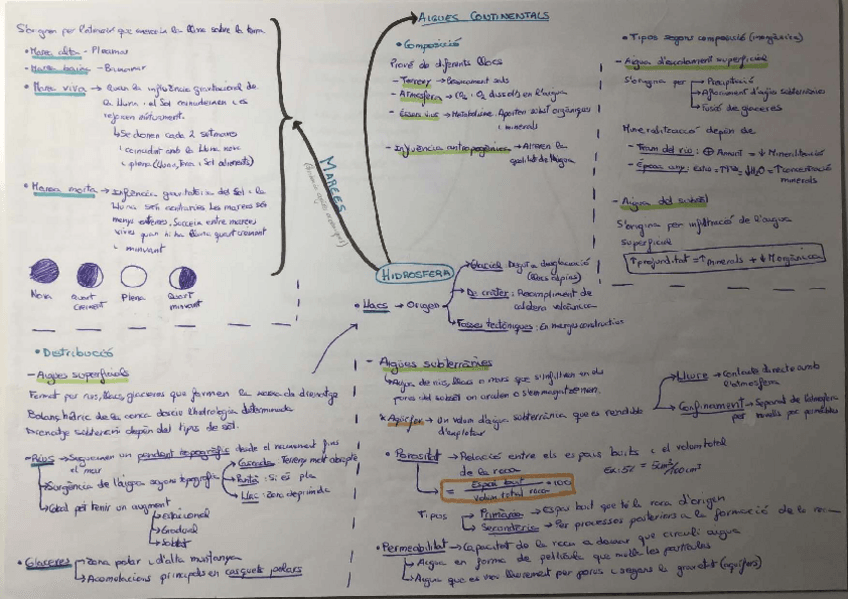 S'origina per l'atracció que exerceix la lluna sobre la terra
• Marea alta - Pleamar
• Marea baixa - Baixamar
• Marea viva → Quan la influència gravitacional de
la lluna i el Sol coincideixen i es
reforcen mútuament.
↳ Se donen cada 2 setmanes
coincidint amb la lluna nova
i plena (lluna, Terra i Sol alineats)
• Marea morta → Influència gravitatòria del Sol i la
lluna són contraries. Les marees són
menys extenses. Succeix entre marees
vives quan hi ha lluna quart creixent
i minvant
Nova
Quart creixent
Plena
Quart minvant
MAREES
HIDROSFERA
AIGÜES CONTINENTALS
• Composició
Prové de diferents llocs
- Terreny → sals
- Atmosfera → CO₂ i O₂ dissolts en l'aigua
- Éssers vius → Metabolisme. Aporten subst orgàniques
i minerals
- Influència antropogènica → Alteren la
qualitat de l'aigua
• Tipos segons composició (inorgànica)
- Aigua d'escolament superficial
S'origina per → Precipitació
→ Aflorament d'aigües subterrànies
→ Fusió de glaceres
Mineralització depèn de
- Tram del riu: ⊕ Amunt = ↓ Mineralització
- Època any: Estiu = ↑Tª = ↓H₂O = ↑concentració
minerals
- Aigua del subsòl
S'origina per infiltració de l'aigua
superficial
↑ profunditat = ↑ minerals + ↓ M orgànica
• Llacs → Origen
Glacial: Degut a desglaciació
(llacs alpins)
De cràter: Reompliment de
caldera volcànica
Fosses tectòniques: En marges constructius
• Distribució
- Aigües superficials
Format per rius, llacs, glaceres que formen la xarxa de drenatge
Balanç hídric de la conca descriu l'hidrologia determinada
Drenatge subterrani depèn del tipus de sòl.
• Rius → Segueixen un pendent topogràfic desde el naixement fins
el mar
→ Surgència de l'aigua segons topografia
Cascada: Terreny molt abrupte
Si és pla
Llac: Zona deprimida
→ Cabal pot tenir un augment
→ estacional
→ Gradual
→ Sobtat
• Glaceres → Zona polar i d'alta muntanya
→ Acumulacions principals en casquets polars
- Aigües subterrànies
↳ Aigua de rius, llacs o mars que s'infiltren en els
porus del subsòl on circulen o s'enmagatzemen.
* Aqüífer → Un volum d'aigua subterrània que es rendible
d'explotar
→ Lliure → Contacte directe amb
l'atmosfera
→ Confinament → Separat de l'atmosfera
• Porositat → Relació entre els espais buits i el volum total
de la roca
= Espai buit / volum total roca · 100
Tipos
Primària → Espai buit que té la roca d'origen
Secundària → Per processos posteriors a la formació de la roca
• Permeabilitat → Capacitat de la roca a deixar que circuli aigua
→ Aigua en forma de pel·lícula que mulla les partícules
→ Aigua que es mou lliurement per porus i segons la gravetat (aqüífers)